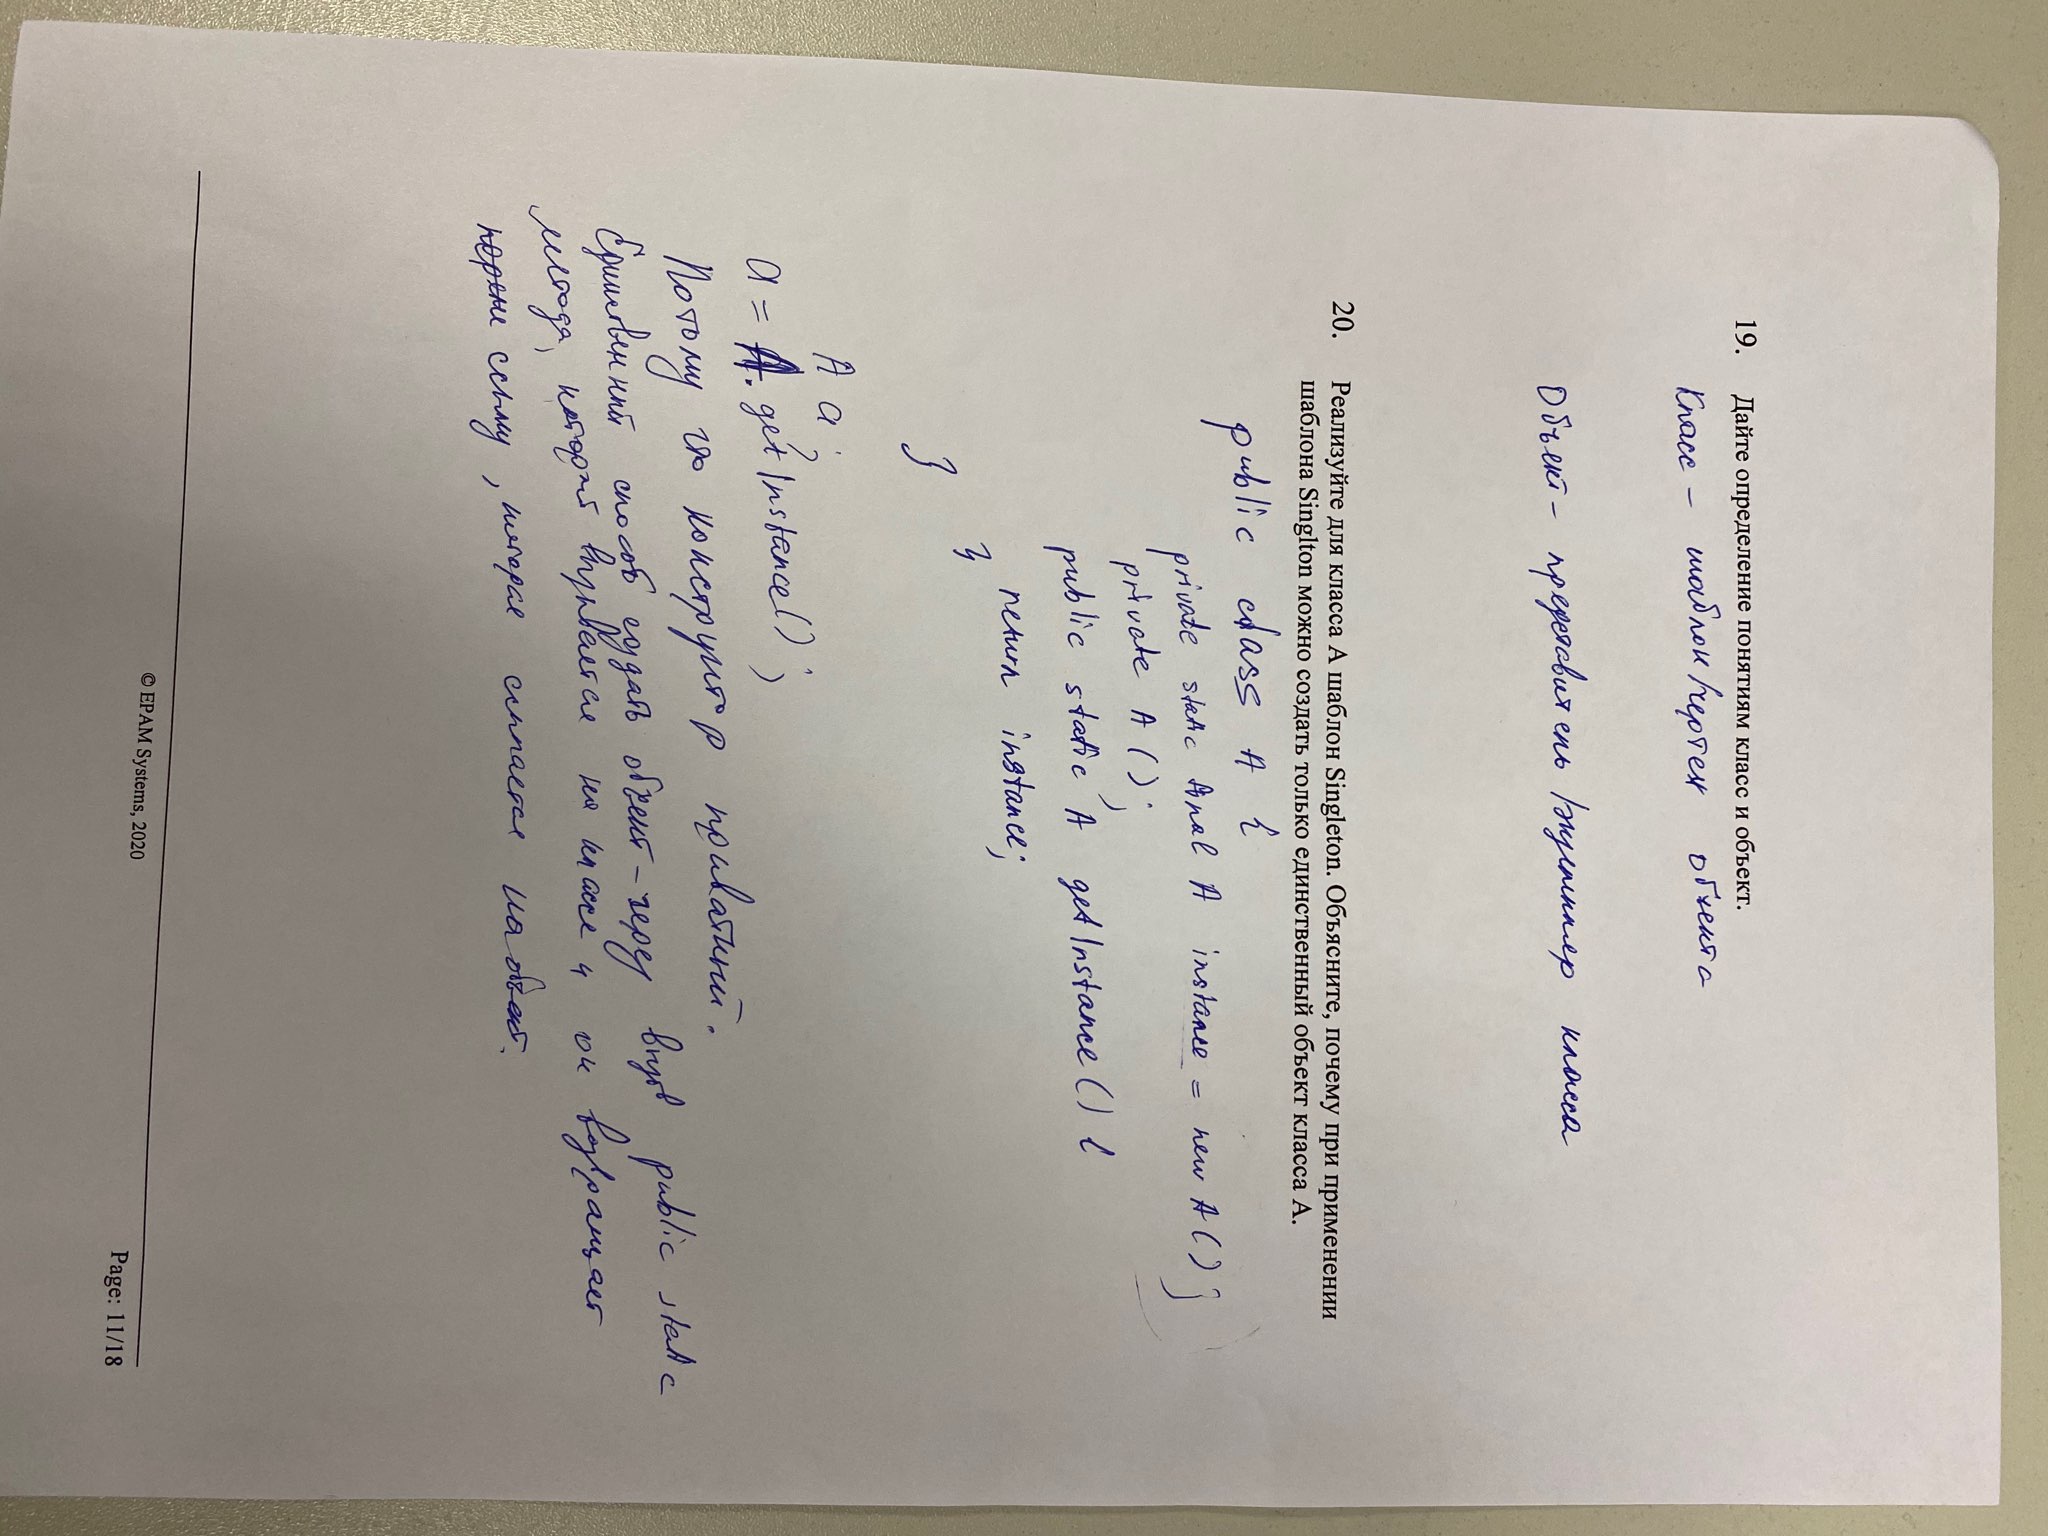 19. Дайте определение понятиям класс и объект.
Класс – шаблон/чертеж объекта
Объект – представитель/экземпляр класса
20. Реализуйте для класса A шаблон Singleton. Объясните, почему при применении
шаблона Singlton можно создать только единственный объект класса A.
public class A {
private static final A instance = new A();
private A();
public static A getInstance() {
return instance;
}
}
A a;
a = A.getInstance();
Потому что конструктор приватный.
Единственный способ создать объект – через вызов public static
метода, который вызывается на классе и он возвращает
ссылку, которая ссылается на объект.
© EPAM Systems, 2020
Page: 11/18